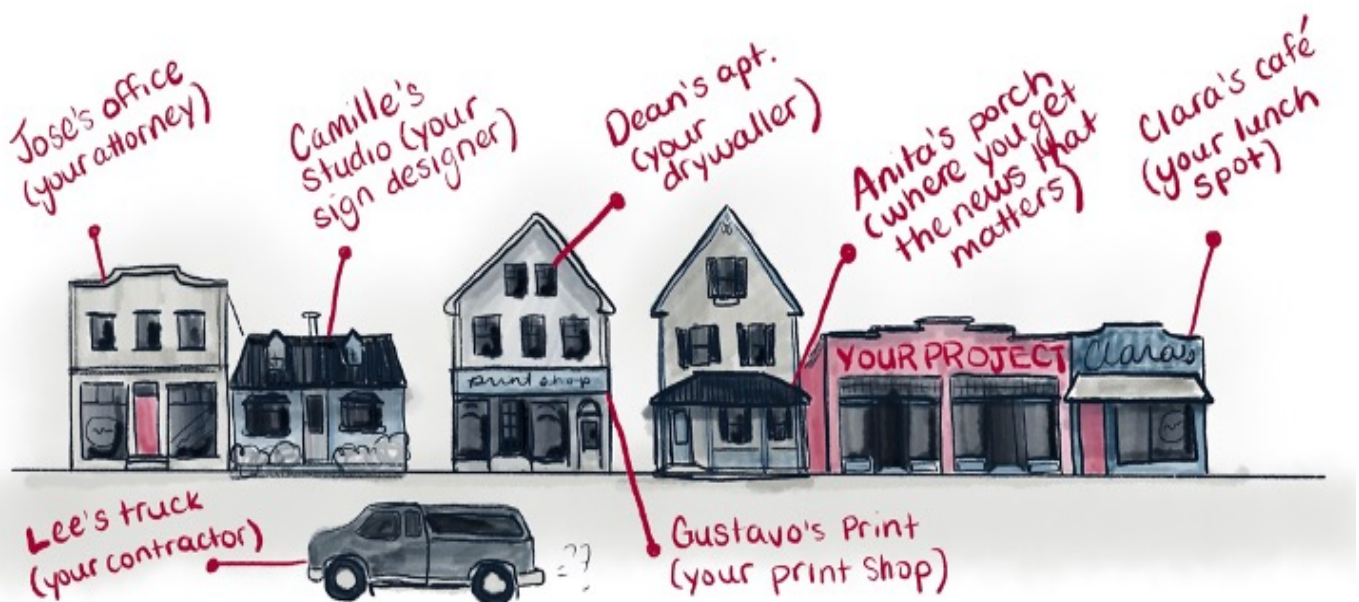 Jose's office
(your attorney)
Camille's
studio (your
sign designer)
Dean's apt.
(your
drywaller)
Anita's porch
(where you get
the news that
matters)
Clara's café
(your lunch
spot)
print shop
YOUR PROJECT
Clara's
Lee's truck
(your contractor)
Gustavo's Print
(your print Shop)
??